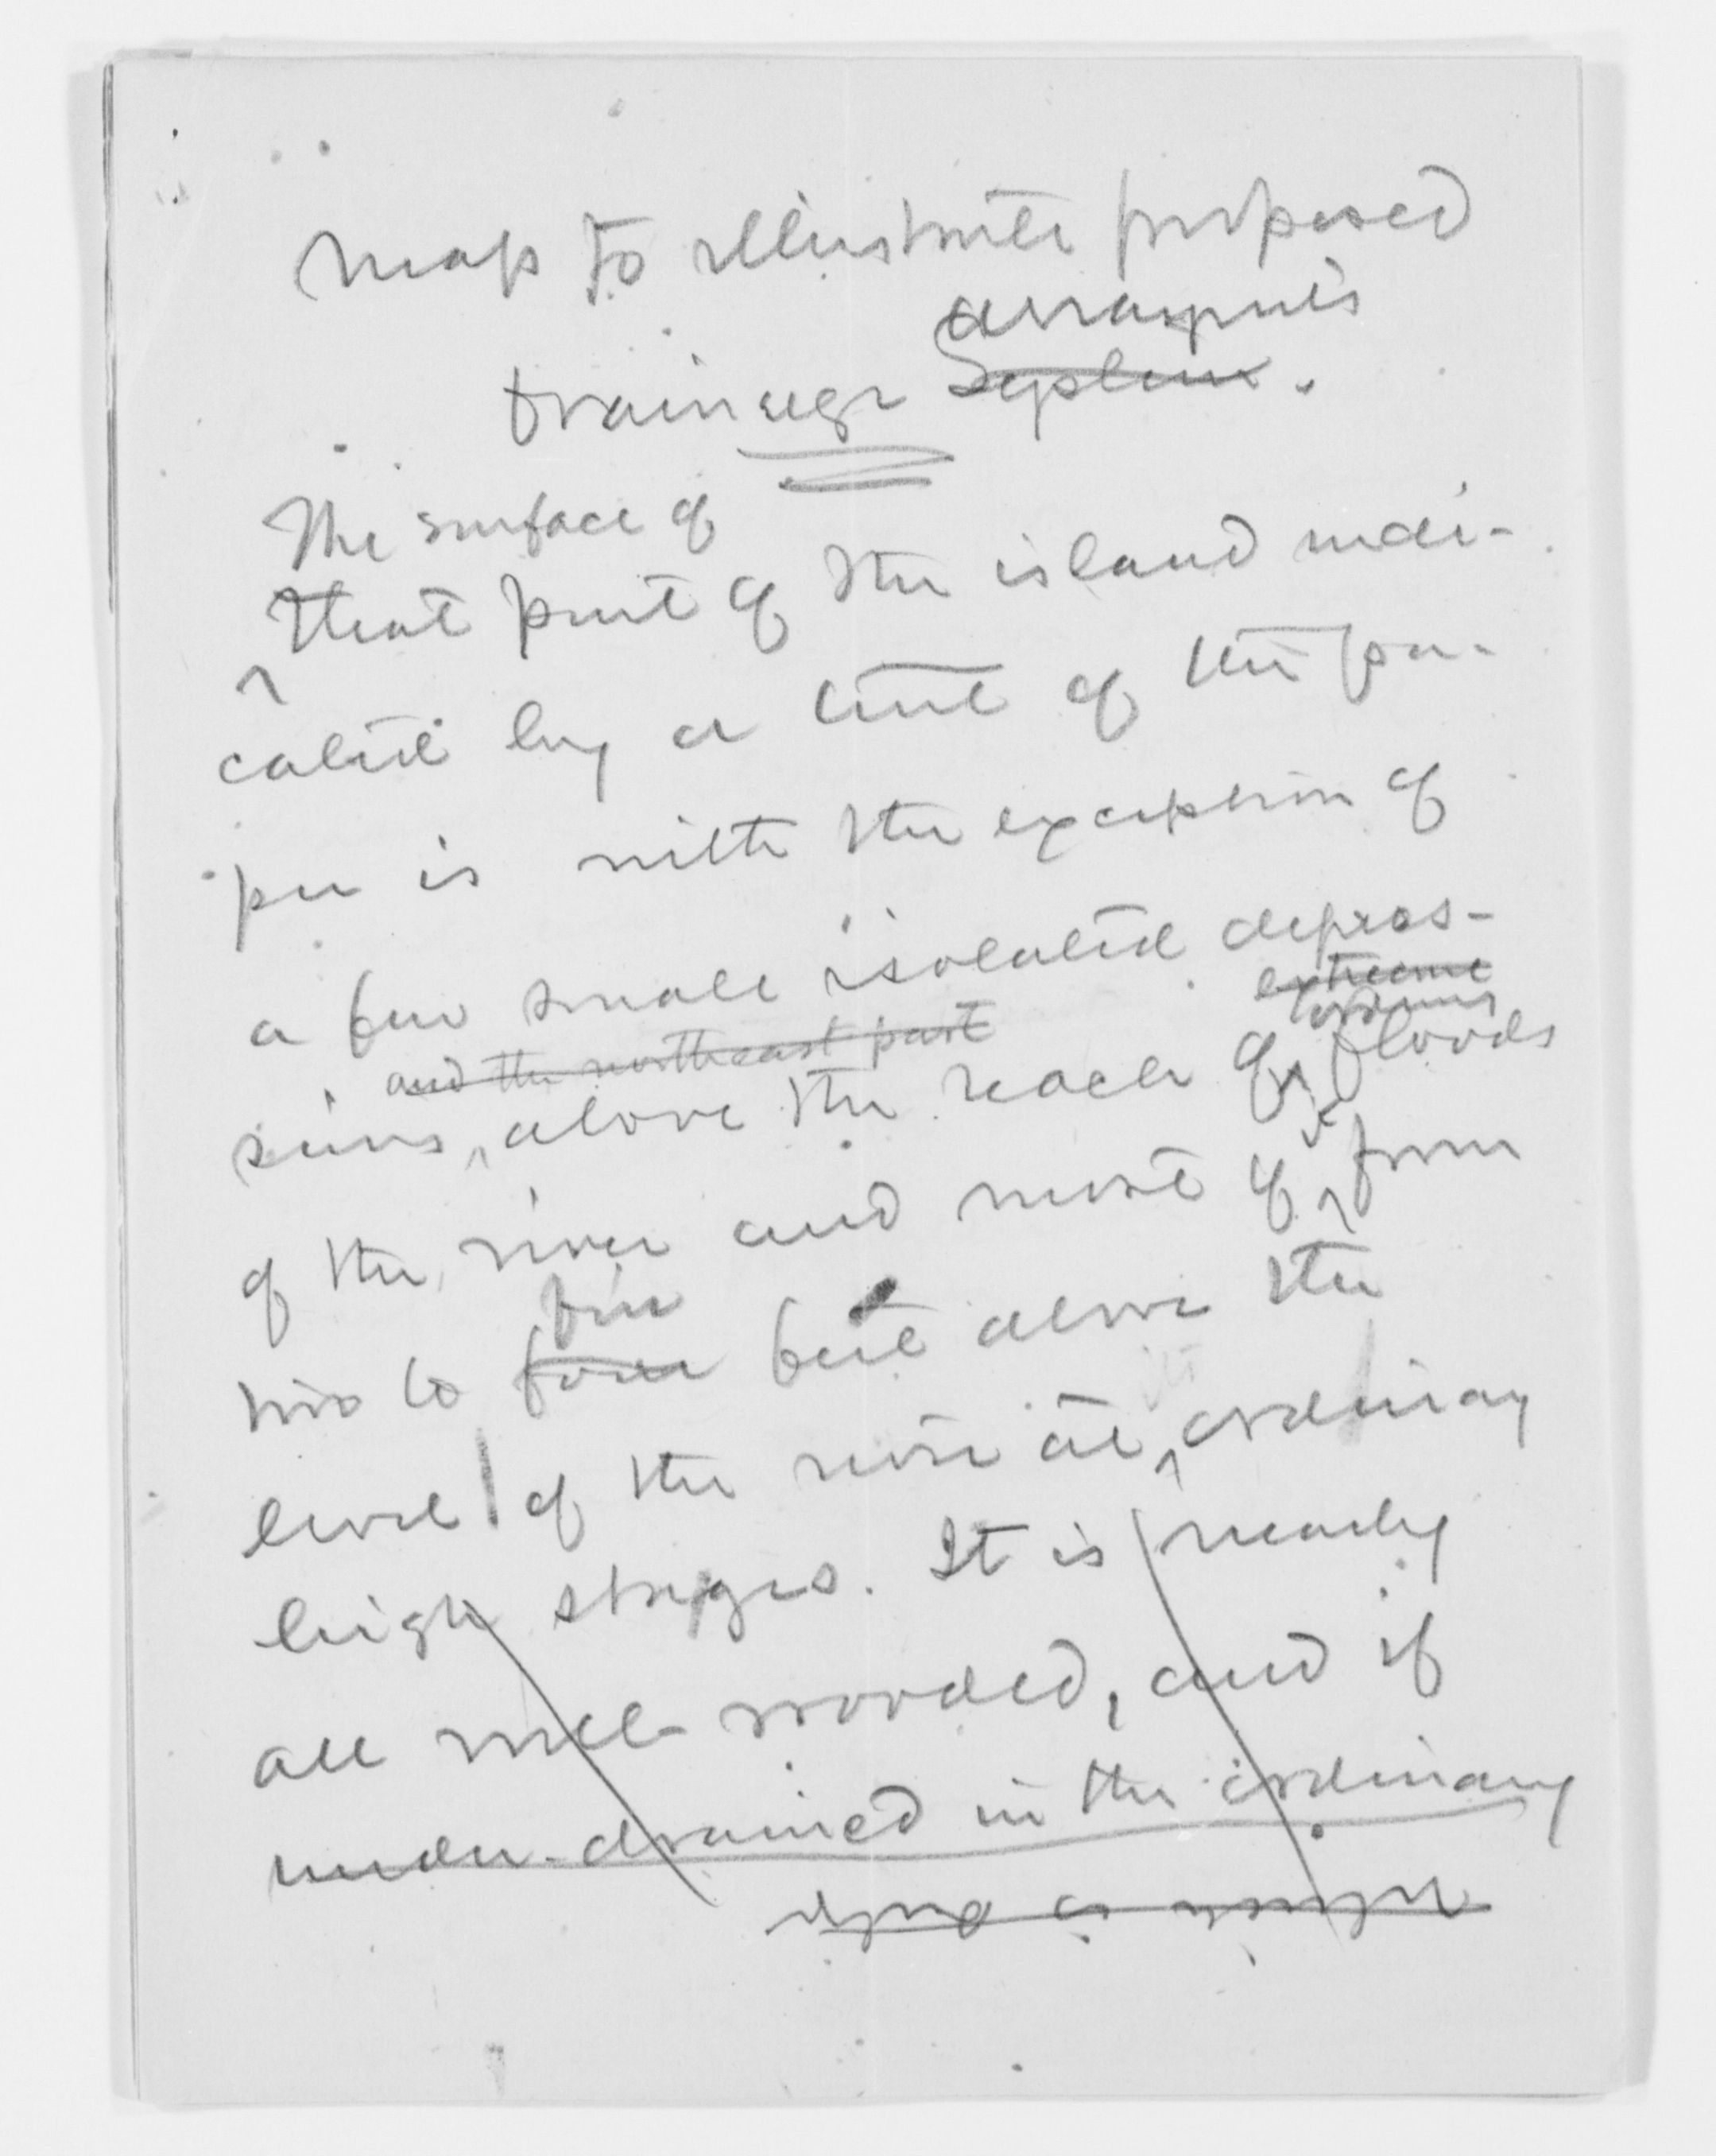 Map to illustrate proposed
arrangements
drainage System.
The surface of
that part of the island indi-
cated by a tint of the pa-
per is with the exception of
a few small isolated depres-
extreme
ordinary
and the northeast part
sions, above the reach of floods
it
of the river and most of from
five
two to four feet above the
its
level of the river at ordinary
high stages. It is nearly
all well wooded, and if
under-drained in the ordinary